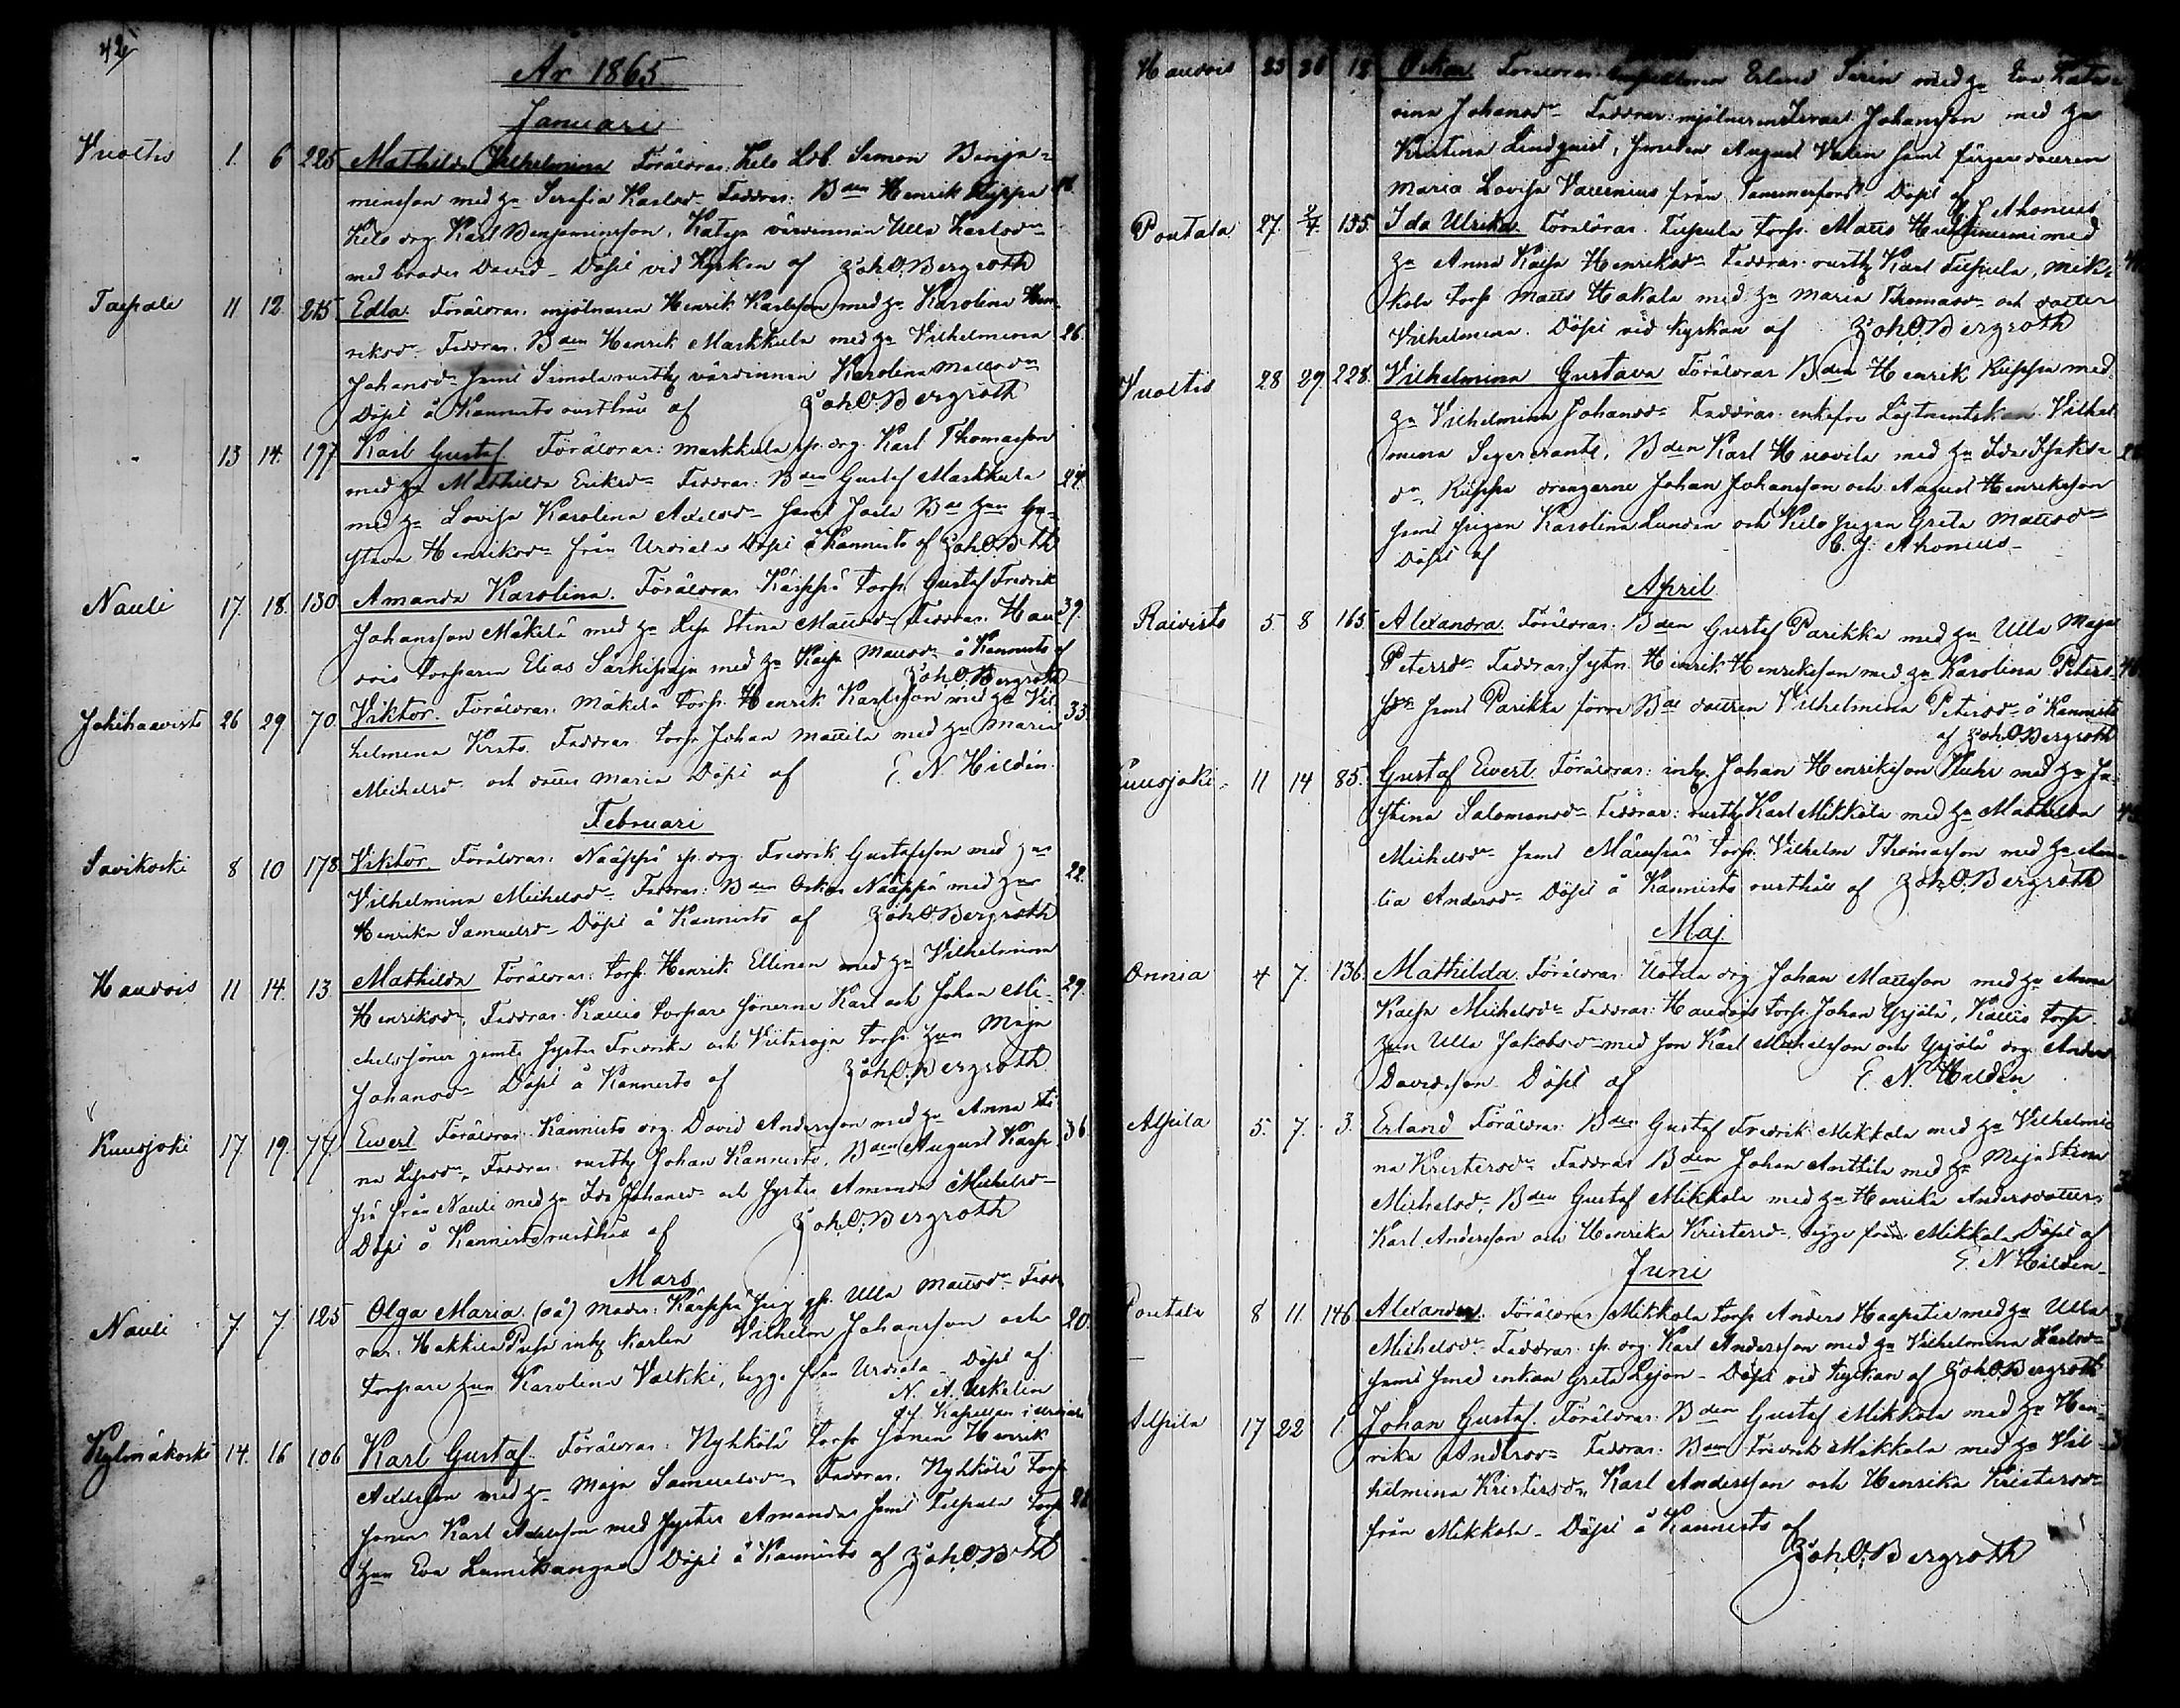 42
År 1865.
Januari
Vuoltis 1. 6 225 Mathilda Vilhelmina Föräldrar: Kelo Ldb. Simon Benja-
minsson med h:u Serafia Karlsd:r Faddrar: B:den Henrik Kuppa
Kelo drg. Karl Benjaminsson, värdinnan Ulla Karlsd:r
med broder David - Döpt vid Kyrkan af Joh. O. Bergroth
Taipale 11 12. 215 Edla. Föräldrar: mjölnaren Henrik Karlsson med h:u Karolina Hen-
riksd:r Faddrar: B:den Henrik Markkula med h:u Vilhelmina 26.
Johansd:r samt Simola rusth. värdinnan Karolina Mattsd:r
Döpt å Kannisto rusthåll af Joh. O. Bergroth
" 13 14. 197 Karl Gustaf. Föräldrar: Markkula sp. drg. Karl Thomasson
med h:u Mathilda Eriksd:r Faddrar: B:den Gustaf Markkula 24.
med h:u Lovisa Karolina Axelsd:r samt B:de h:un Gu-
stava Henriksd:r från Urdiala Döpt å Kannisto af Joh. O. B-th
Nauli 17. 18. 130 Amanda Karolina. Föräldrar Käsppä torp. Gustaf Fredrik
Johansson Mäkelä med h:u Lisa Stina Mattsd:r Faddrar: Hau- 39.
vois torparen Elias Särkipaja med h:u Kaisa Mattsd:r å Kannisto af
Joh. O. Bergroth
Jokihaavisto 26 29. 70. Viktor. Föräldrar: Mäkelä torp. Henrik Karlsson med h:u Vil- 33.
helmina Krists. Faddrar torp. Johan Mattila med h:u Maria
Michelsd:r och dotter Maria Döpt af E. N. Hildén.
Februari
Savikoski 8 10 178. Viktor. Föräldrar: Nääppä sp. drg. Fredrik Gustafsson med h:u
Vilhelmina Michelsd:r Faddrar: B:den Oskar Nääppä med h:u 22.
Henrika Samuelsd:r Döpt å Kannisto af Joh. O. Bergroth
Haudois 11 14. 13 Mathilda Föräldrar: torp. Henrik Ellinen med h:u Vilhelmina
Henriksd:r, Faddrar: Kauis torpare sönerne Karl och Johan Mi- 29.
chelssöner jemte syster Fredrika och Viitaoja torp. h:un Maja
Johansd:r Döpt å Kannisto af Joh. O. Bergroth
Kuusjoki 17. 19. 77. Evert Föräldrar: Kannisto drg. David Andersson med h:u Anna Sti-
na Lisasd:r, Faddrar: rusth. Johan Kannisto, B:den August Käsp- 36.
pä från Nauli med h:u Ida Johansd:r och syster Amanda Michelsd:r
Döpt å Kannisto rusthåll af Joh. O. Bergroth
Mars
Nauli 7. 7. 125 Olga Maria. (oä) Moder: Käsppä Ulla Mattsd:r Fadd-
rar: Hakkila inh. karlen Vilhelm Johansson och 20.
torpare h:un Karolina Välkki, begge från Urdiala - Döpt af
N. A. Urkelin
Kapellan i Urdiala
Kylmäkoski 14. 16 106 Karl Gustaf. Föräldrar: Nyhkölä torp. sonen Henrik
Axelsson med h:u Maja Samuelsd:r, Faddrar: Nyhkölä torp.
sonen Karl Axelsson med syster Amanda samt Tuspula torp.
h:un Eva Lumikangas. Döpt å Kannisto af Joh. O. B-th
Haudois 23 26 12. Oskar. Föräldrar: Inspektoren Erland Serén med h:u Eva Kata-
rina Johansd:r Faddrar: mjölnaren Johansson med h:u
Kristina Lindqvist, smeden August Valin samt färgare dottren
Maria Lovisa Vallenius från Tammerfors. Döpt af
C. J. Ahonius
Pontala 27. 2/4. 155. Ida Ulrika. Föräldrar. Tuspula torp. Matts med
h:u Anna Kaisa Henriksd:r Faddrar: rusth. Karl Tuspula, Mik-
kola torp. Matts Hakala med h:u Maria Thomasd:r och dotter
Vilhelmina. Döpt vid kyrkan af Joh. O. Bergroth
Vuoltis 28 29. 228. Vilhelmina Gustava Föräldrar B:den Henrik Kuppa med
h:u Vilhelmina Johansd:r Faddrar: enkefru Löjtnantskan Vilhel-
mina Segercrantz, B:den Karl Huovila med h:u Ida Isaks-
d:r Kuppa drengarne Johan Johansson och August Henriksson
samt pigan Karolina Lundén och Kelo pigan Greta Mattsd:r
Döpt af C. J. Ahonius.
April
Raivisto 5 8 165. Alexandra. Föräldrar: B:den Gustaf Parikka med h:u Ulla Maja
Petersd:r Faddrar: sytn. Henrik Henriksson med h:u Karolina Peters-
d:r samt Parikka förre B:de dottren Vilhelmina Petersd:r å Kannisto
af Joh. O. Bergroth
Kuusjoki 11 14 85. Gustaf Evert. Föräldrar: inh. Johan Henriksson med h:u Ju-
stina Salomonsd:r Faddrar: rusth. Karl Mikkola med h:u Mathilda
Michelsd:r samt Mäenpää torp. Vilhelm Thomasson med h:u Ama-
lia Andersd:r Döpt å Kannisto rusthåll af Joh. O. Bergroth
Maj.
Onnia 4 7. 136. Mathilda. Föräldrar: Uotila drg. Johan Mattsson med h:u Anna
Kaisa Michelsd:r Faddrar: Haudois torp. Johan Ypjälä, Kauis torp.
h:un Ulla Jakobsd:r med son Karl Michelsson och Ypjälä drg. Anders
Davidsson. Döpt af E. N. Hildén
Alpila 5. 7. 3. Erland Föräldrar: B:den Gustaf Fredrik Mikkola med h:u Vilhelmi-
na Kristersd:r Faddrar B:den Johan Anttila med h:u Maja Stina
Michelsd:r, B:den Gustaf Mikkola med h:u Henrika Andersdotter,
Karl Andersson och Henrika Kristersd:r begge från Mikkola Döpt af
E. N. Hildén.
Juni
Pontala 8 11. 146. Alexander. Föräldrar Mikkola torp. Anders Haapatie med h:u Ulla
Michelsd:r Faddrar: sp. drg. Karl Andersson med h:u Vilhelmina Karlsd:r
samt smed enkan Greta Lejon - Döpt vid kyrkan af Joh. O. Bergroth
Alpila 17 22 1. Johan Gustaf. Föräldrar: B:den Gustaf Mikkola med h:u Hen-
rika Andersd:r Faddrar: B:den Fredrik Mikkola med h:u Vil-
helmina Kristersd:r, Karl Andersson och Henrika Kristersd:r
från Mikkola - Döpt å Kannisto af
Joh. O. Bergroth